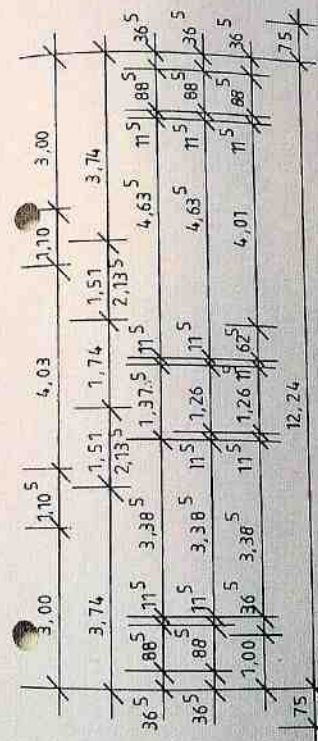 3,00 1,10⁵ 4,03 1,10 3,00
3,74 1,51 1,74 1,51 3,74
2,13⁵ 2,13⁵
36⁵ 88⁵ 11⁵ 3,38⁵ 1,37⁵ 11⁵ 4,63⁵ 11⁵ 88⁵ 36⁵
36⁵ 88⁵ 11⁵ 3,38⁵ 11⁵ 1,26 11⁵ 4,63⁵ 11⁵ 88⁵ 36⁵
1,00 36⁵ 3,38⁵ 11⁵ 1,26 11⁵ 62⁵ 4,01 11⁵ 88⁵ 36⁵
75 12,24 75